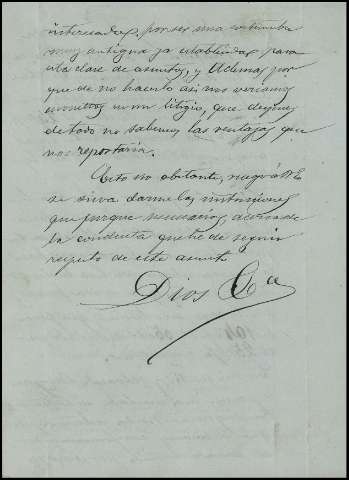 interesados, por ser una costumbre
muy antigua ya establecida para
esta clase de asuntos, y Ademas por
que de no hacerlo asi nos veriamos
en un litigio, que despues
de todo no sabemos las ventajas que
nos reportaria.
Esto no obstante, ruego á V.E
se sirva darme las instrucciones
que juzgue necesarias acerca de
la conducta que he de seguir
respecto de este asunto.
Dios &a